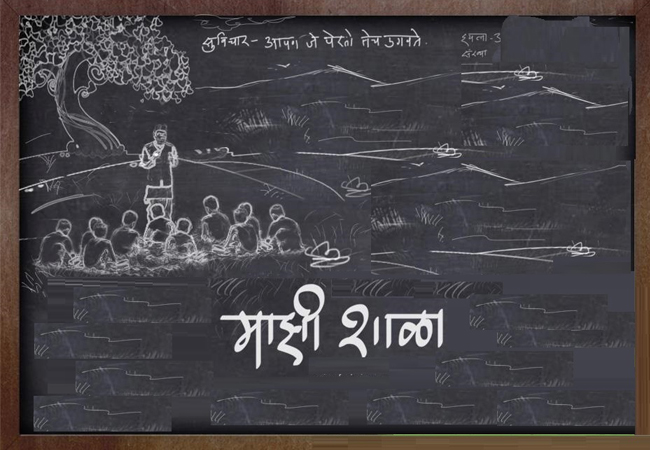 सुविचार - आपण जे पेरतो तेच उगवते.
इयत्ता - 3
संख्या
माझी शाळा